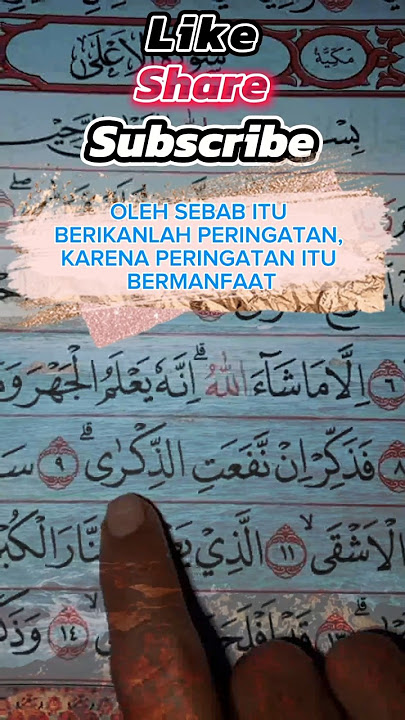 Like
سورة الأعلى مكية
Share
Subscribe
OLEH SEBAB ITU
BERIKANLAH PERINGATAN,
KARENA PERINGATAN ITU
BERMANFAAT
٦ اِلَّا مَا شَاۤءَ اللّٰهُ ۗ اِنَّهٗ يَعْلَمُ الْجَهْرَ وَمَ
٨ فَذَكِّرْ اِنْ نَّفَعَتِ الذِّكْرٰى ۗ ٩ سَ
الْاَشْقَى ۙ ١١ الَّذِيْ النَّارَ الْكُبْ
١٣ قَدْ اَفْلَحَ ١٤ وَذَكَ